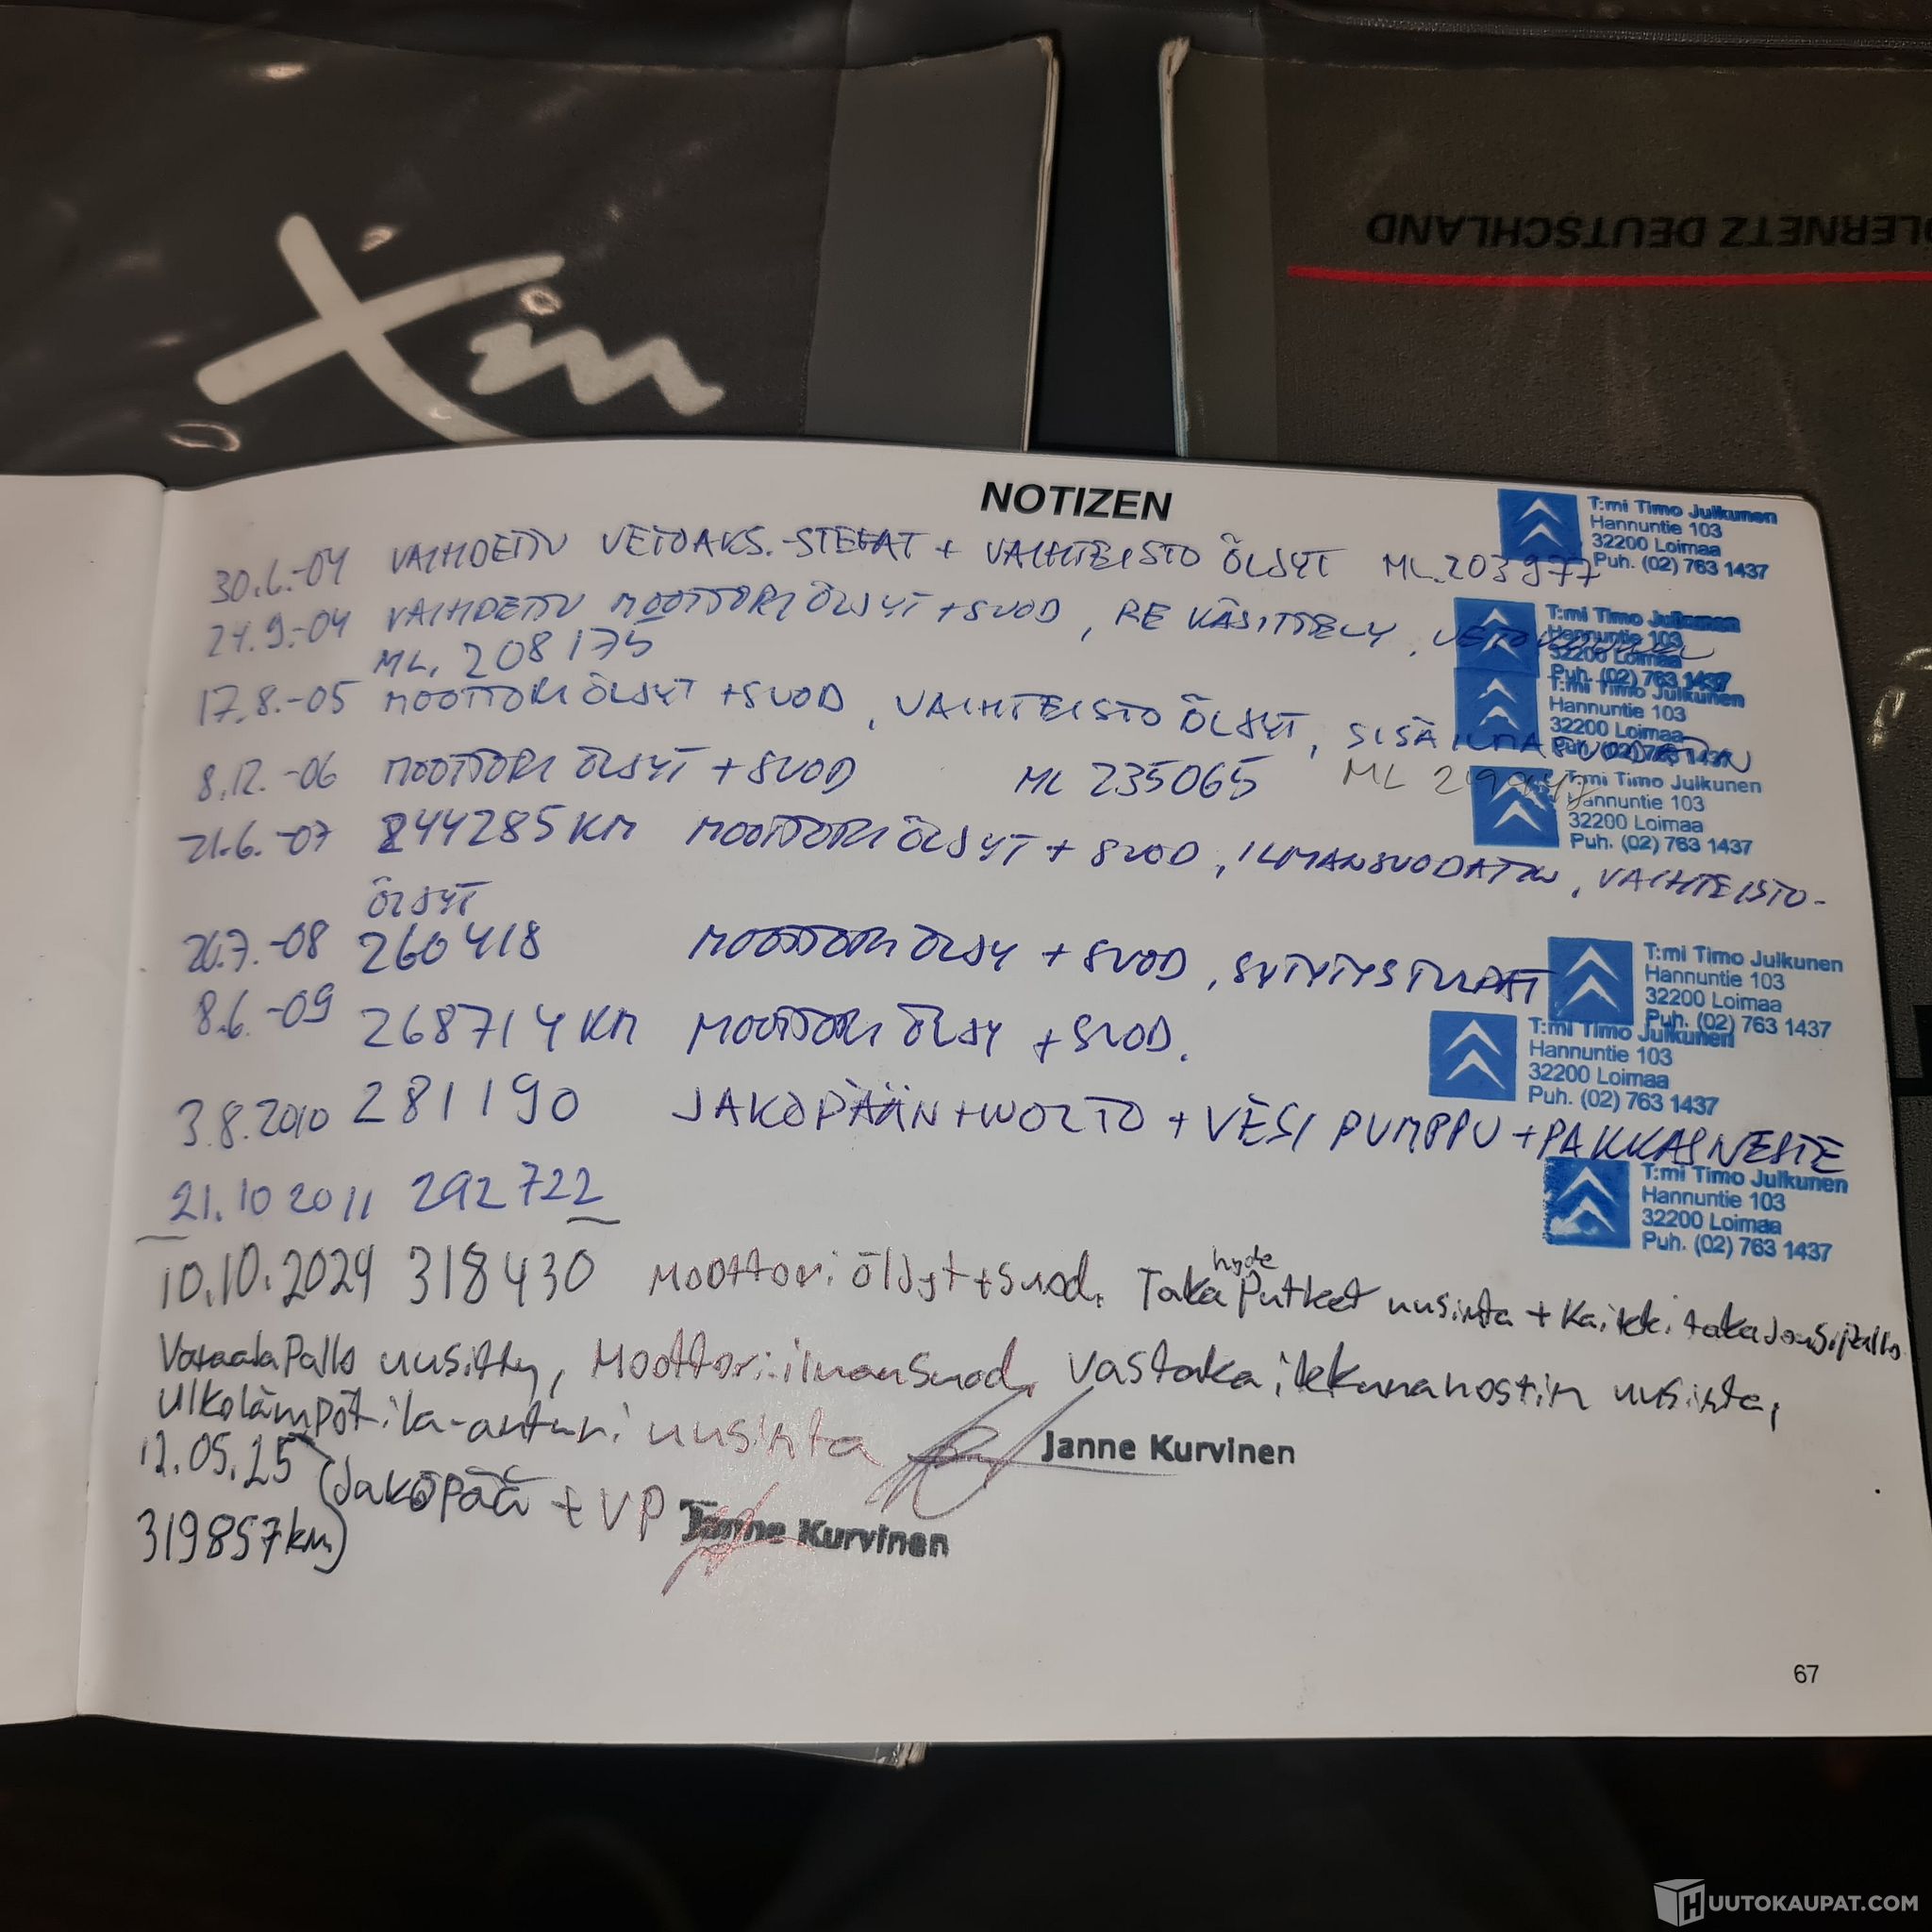 Xm
LERNETZ DEUTSCHLAND
NOTIZEN
T:mi Timo Julkunen
Hannuntie 103
32200 Loimaa
Puh. (02) 763 1437
30.6.-04 VAIHDETTU VETOAKS.-STEFAT + VAIHTEISTO ÖLJYT ML.203977
T:mi Timo Julkunen
Hannuntie 103
32200 Loimaa
Puh. (02) 763 1437
24.9.-04 VAIHDETTU MOOTTORI ÖLJYT + SUOD, RE KÄSITTELY,
ML. 208175
T:mi Timo Julkunen
Hannuntie 103
32200 Loimaa
Puh. (02) 763 1437
17.8.-05 MOOTTORI ÖLJYT + SUOD, VAIHTEISTO ÖLJYT, SISÄILMASUODATIN
8.12.-06 MOOTTORI ÖLJYT + SUOD ML 235065 ML
T:mi Timo Julkunen
Hannuntie 103
32200 Loimaa
Puh. (02) 763 1437
21.6.-07 244285 KM MOOTTORI ÖLJYT + SUOD, ILMANSUODATIN, VAIHTEISTO-
ÖLJYT
20.7.-08 260418 MOOTTORI ÖLJY + SUOD, SYTYTYSTULPAT
T:mi Timo Julkunen
Hannuntie 103
32200 Loimaa
Puh. (02) 763 1437
8.6.-09 268714 KM MOOTTORI ÖLJY + SUOD.
T:mi Timo Julkunen
Hannuntie 103
32200 Loimaa
Puh. (02) 763 1437
3.8.2010 281190 JAKOPÄÄN HUOLTO + VESI PUMPPU + PAKKASNESTE
T:mi Timo Julkunen
Hannuntie 103
32200 Loimaa
Puh. (02) 763 1437
21.10 2011 292722
hyde
10.10.2024 318430 Moottori öljyt + suod. Taka Putket uusinta + Kaikki takajousipallo
Pallo uusittu, Moottori-ilmansuod, vastakaikkunanostin uusinta,
Ulkolämpötila-anturi uusinta Janne Kurvinen
12.05.25 (Jakopää + VP Janne Kurvinen
319857km)
67
HUUTOKAUPAT.COM